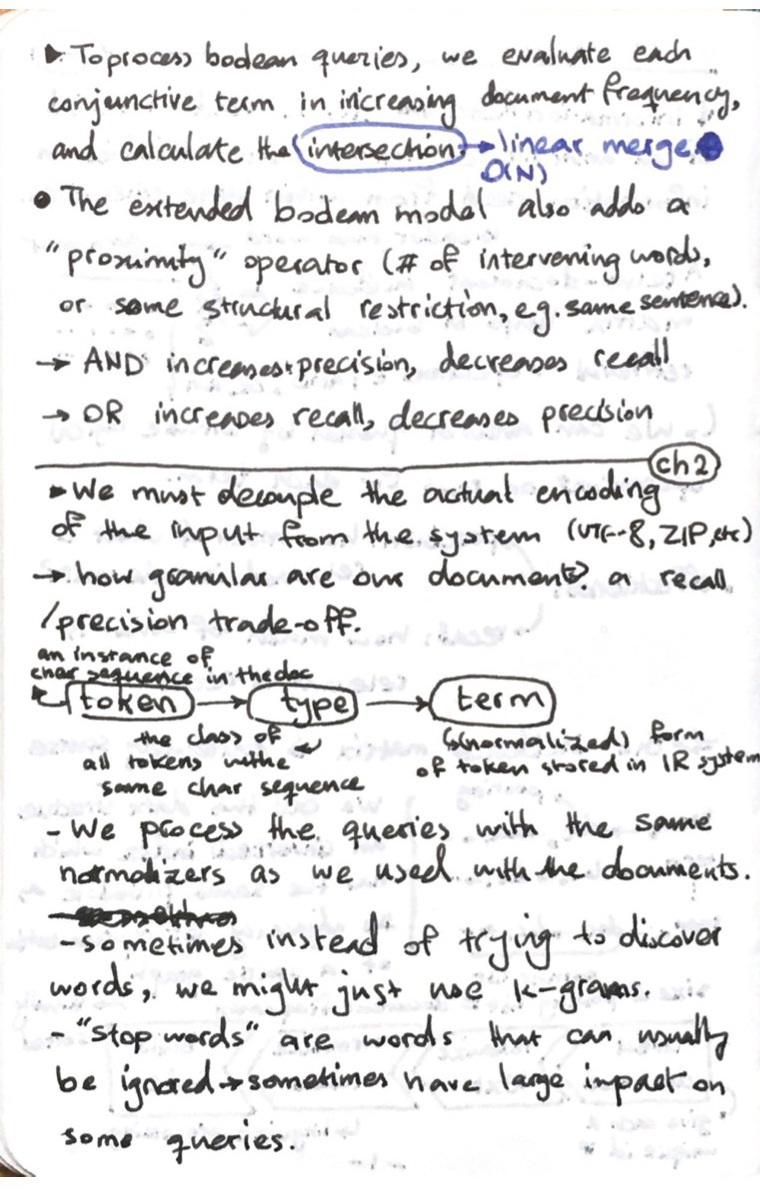 ▸ To process boolean queries, we evaluate each
conjunctive term in increasing "document frequency",
and calculate the intersection → linear merge
O(N)
• The extended boolean model also adds a
"proximity" operator (# of intervening words,
or some structural restriction, e.g. same sentence).
→ AND increases precision, decreases recall
→ OR increases recall, decreases precision
ch2
▸ We must decouple the actual encoding
of the input from the system (UTF-8, ZIP, etc)
→ how granular are our documents? a recall
/precision trade-off.
an instance of
char sequence in the doc
token → type → term
the class of
all tokens w the
same char sequence
(normalized) form
of token stored in IR system
- We process the queries with the same
normalizers as we used with the documents.
- sometimes instead of trying to discover
words, we might just use k-grams.
- "stop words" are words that can usually
be ignored → sometimes have large impact on
some queries.